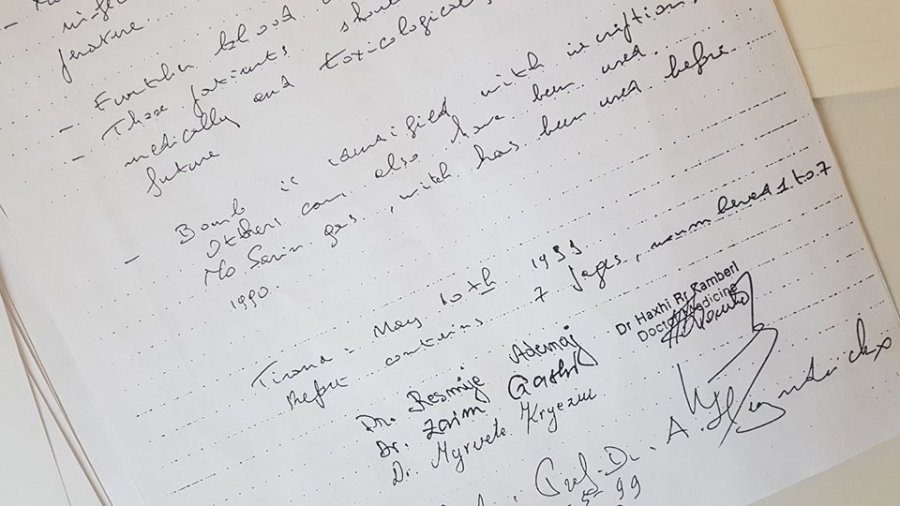 future
- Further blood
- These patients should
medically and toxicological
future
- Bomb is identified with inscriptions
Others can also have been used.
No Sarin gas, witch has been used before
1990.
Tirana - May 10th 1999
Report contains 7 pages, numbered 1 to 7
Dr Haxhi Rr Kamberi
Doctor Medicine
Dr. Resmije Ademaj
Dr. Zaim Gashi
Dr. Myrvete Kryeziu
Prof. Dr. A. Heyndrickx
99